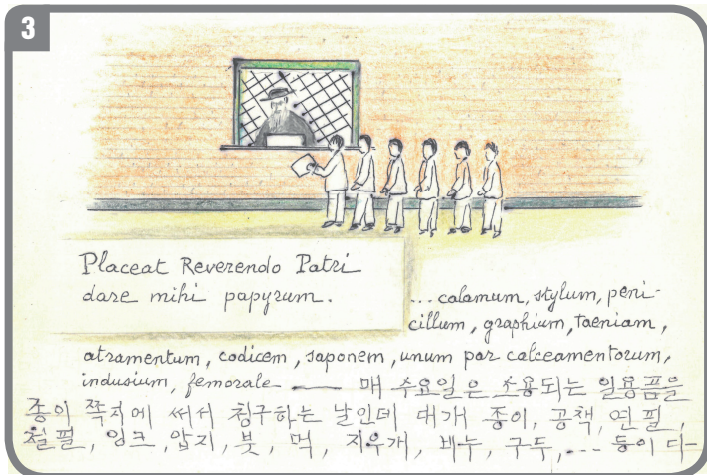 3
Placeat Reverendo Patri
dare mihi papyrum.
... calamum, stylum, peni-
cillum, graphium, taeniam,
atramentum, codicem, saponem, unum par calceamentorum,
indusium, femorale — 매 수요일은 소용되는 일용품을
종이 쪽지에 써서 청구하는 날인데 대개 종이, 공책, 연필,
철필, 잉크, 압지, 붓, 먹, 지우개, 비누, 구두, ... 등이 다-